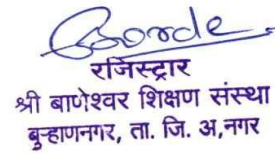 रजिस्ट्रार
श्री बाणेश्वर शिक्षण संस्था
बुऱ्हाणनगर, ता. जि. अ,नगर